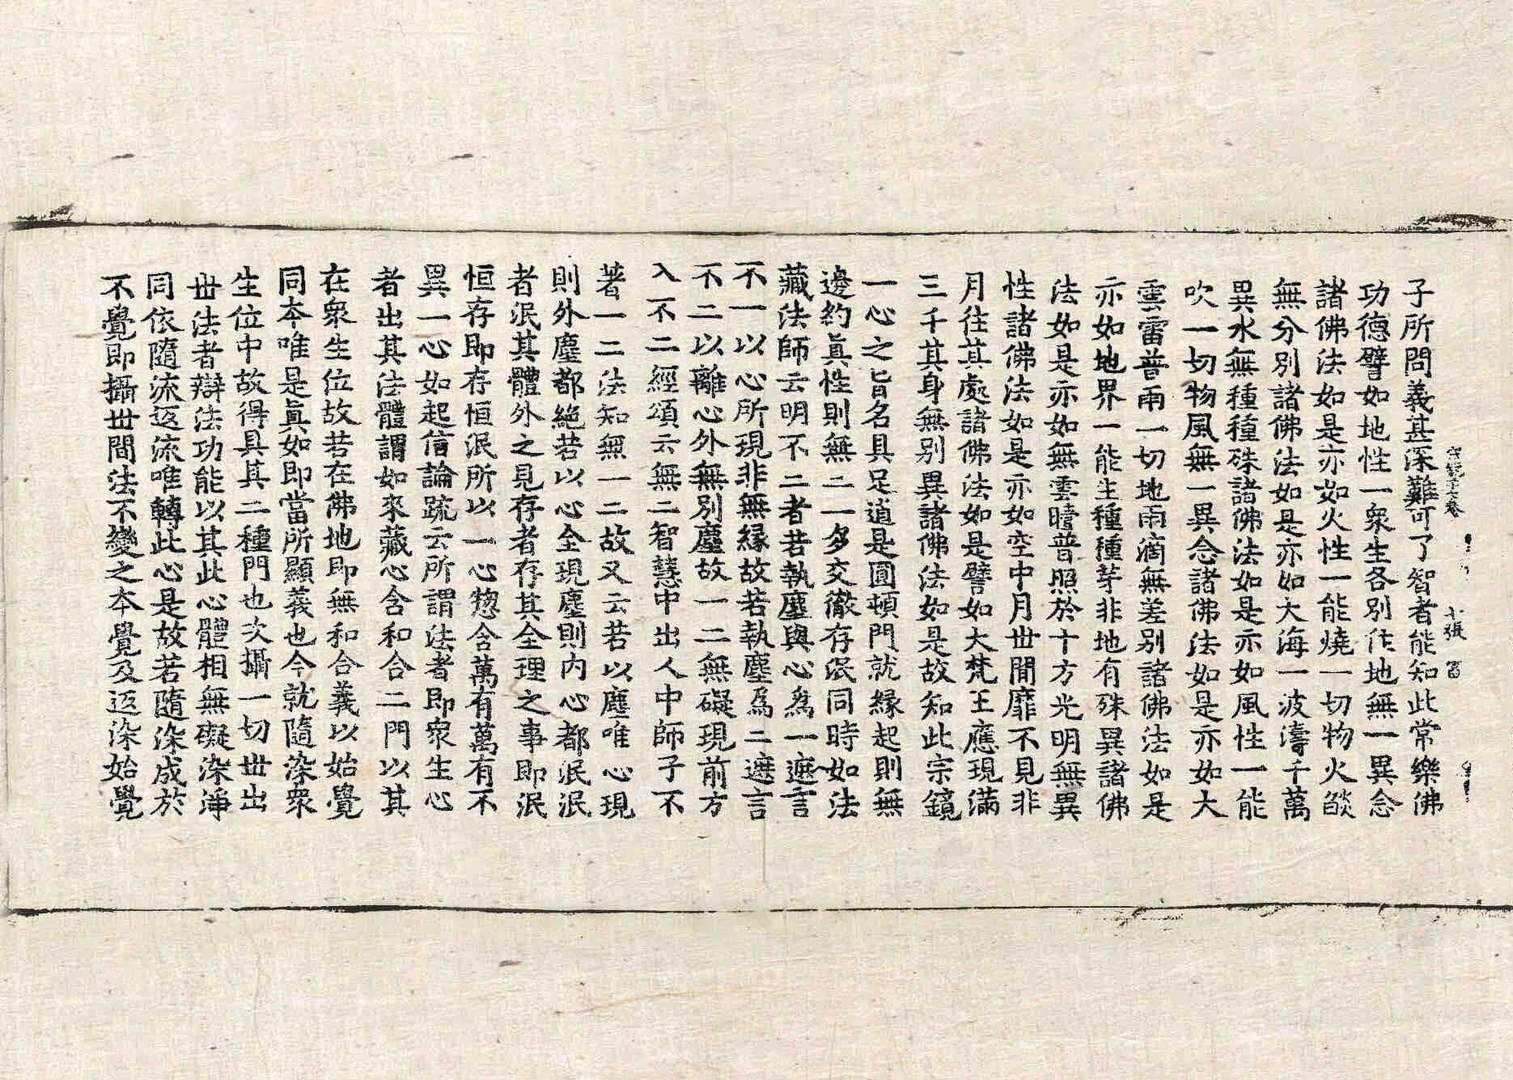 十張 富
子所問義甚深難可了智者能知此常樂佛
功德譬如地性一衆生各別住地無一異念
諸佛法如是亦如火性一能燒一切物火燄
無分別諸佛法如是亦如大海一波濤千萬
異水無種種殊諸佛法如是亦如風性一能
吹一切物風無一異念諸佛法如是亦如大
雲雷普雨一切地雨滴無差別諸佛法如是
亦如地界一能生種種芽非地有殊異諸佛
法如是亦如無雲曀普照於十方光明無異
性諸佛法如是亦如空中月丗間靡不見非
月往其處諸佛法如是譬如大梵王應現滿
三千其身無別異諸佛法如是故知此宗鏡
一心之旨名具足道是圓頓門就緣起則無
邊約眞性則無二一多交徹存泯同時如法
藏法師云明不二者若執塵與心爲一遮言
不一以心所現非無緣故若執塵爲二遮言
不二以離心外無別塵故一二無礙現前方
入不二經頌云無二智慧中出人中師子不
著一二法知無一二故又云若以塵唯心現
則外塵都絕若以心全現塵則內心都泯泯
者泯其體外之見存者存其全理之事即泯
恒存即存恒泯所以一心惣含萬有萬有不
異一心如起信論疏云所謂法者即衆生心
者出其法體謂如來藏心含和合二門以其
在衆生位故若在佛地即無和合義以始覺
同本唯是眞如即當所顯義也今就隨染衆
生位中故得具其二種門也次攝一切丗出
丗法者辯法功能以其此心體相無礙染淨
同依隨流返流唯轉此心是故若隨染成於
不覺即攝丗間法不變之本覺及返染始覺